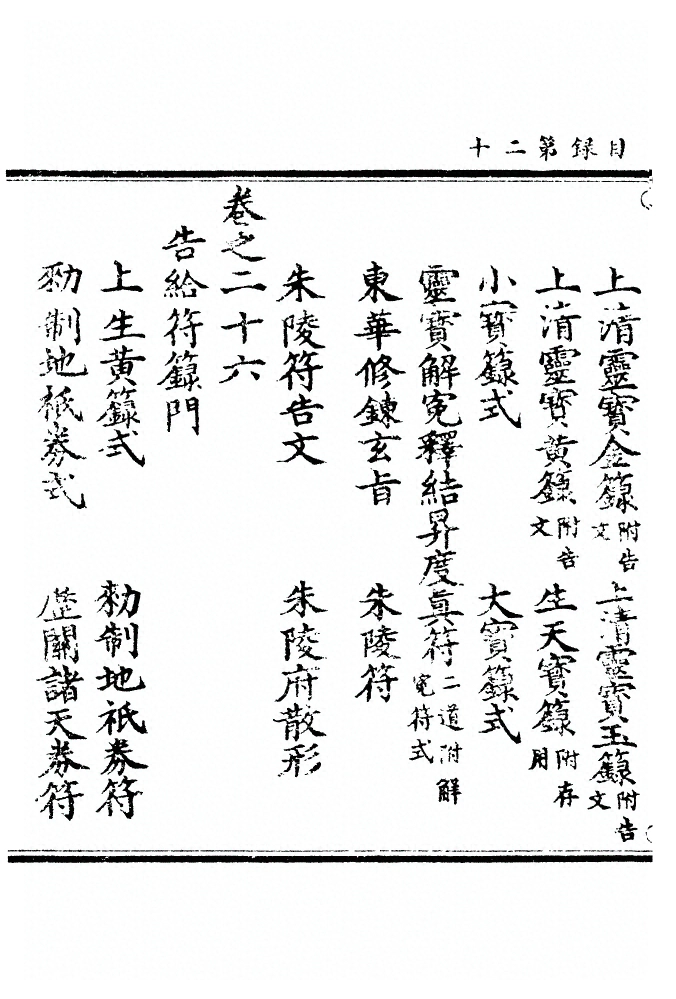 目錄第二十
上清靈寶金籙附告文 上清靈寶玉籙附告文
上清靈寶黃籙附告文 生天寶籙附存用
小寶籙式 大寶籙式
靈寶解冤釋結昇度真符二道附解冤符式
東華修鍊玄旨 朱陵符
朱陵符告文 朱陵府散形
卷之二十六
告給符籙門
上生黃籙式 勑制地祇券符
勑制地祇券式 歷關諸天券符